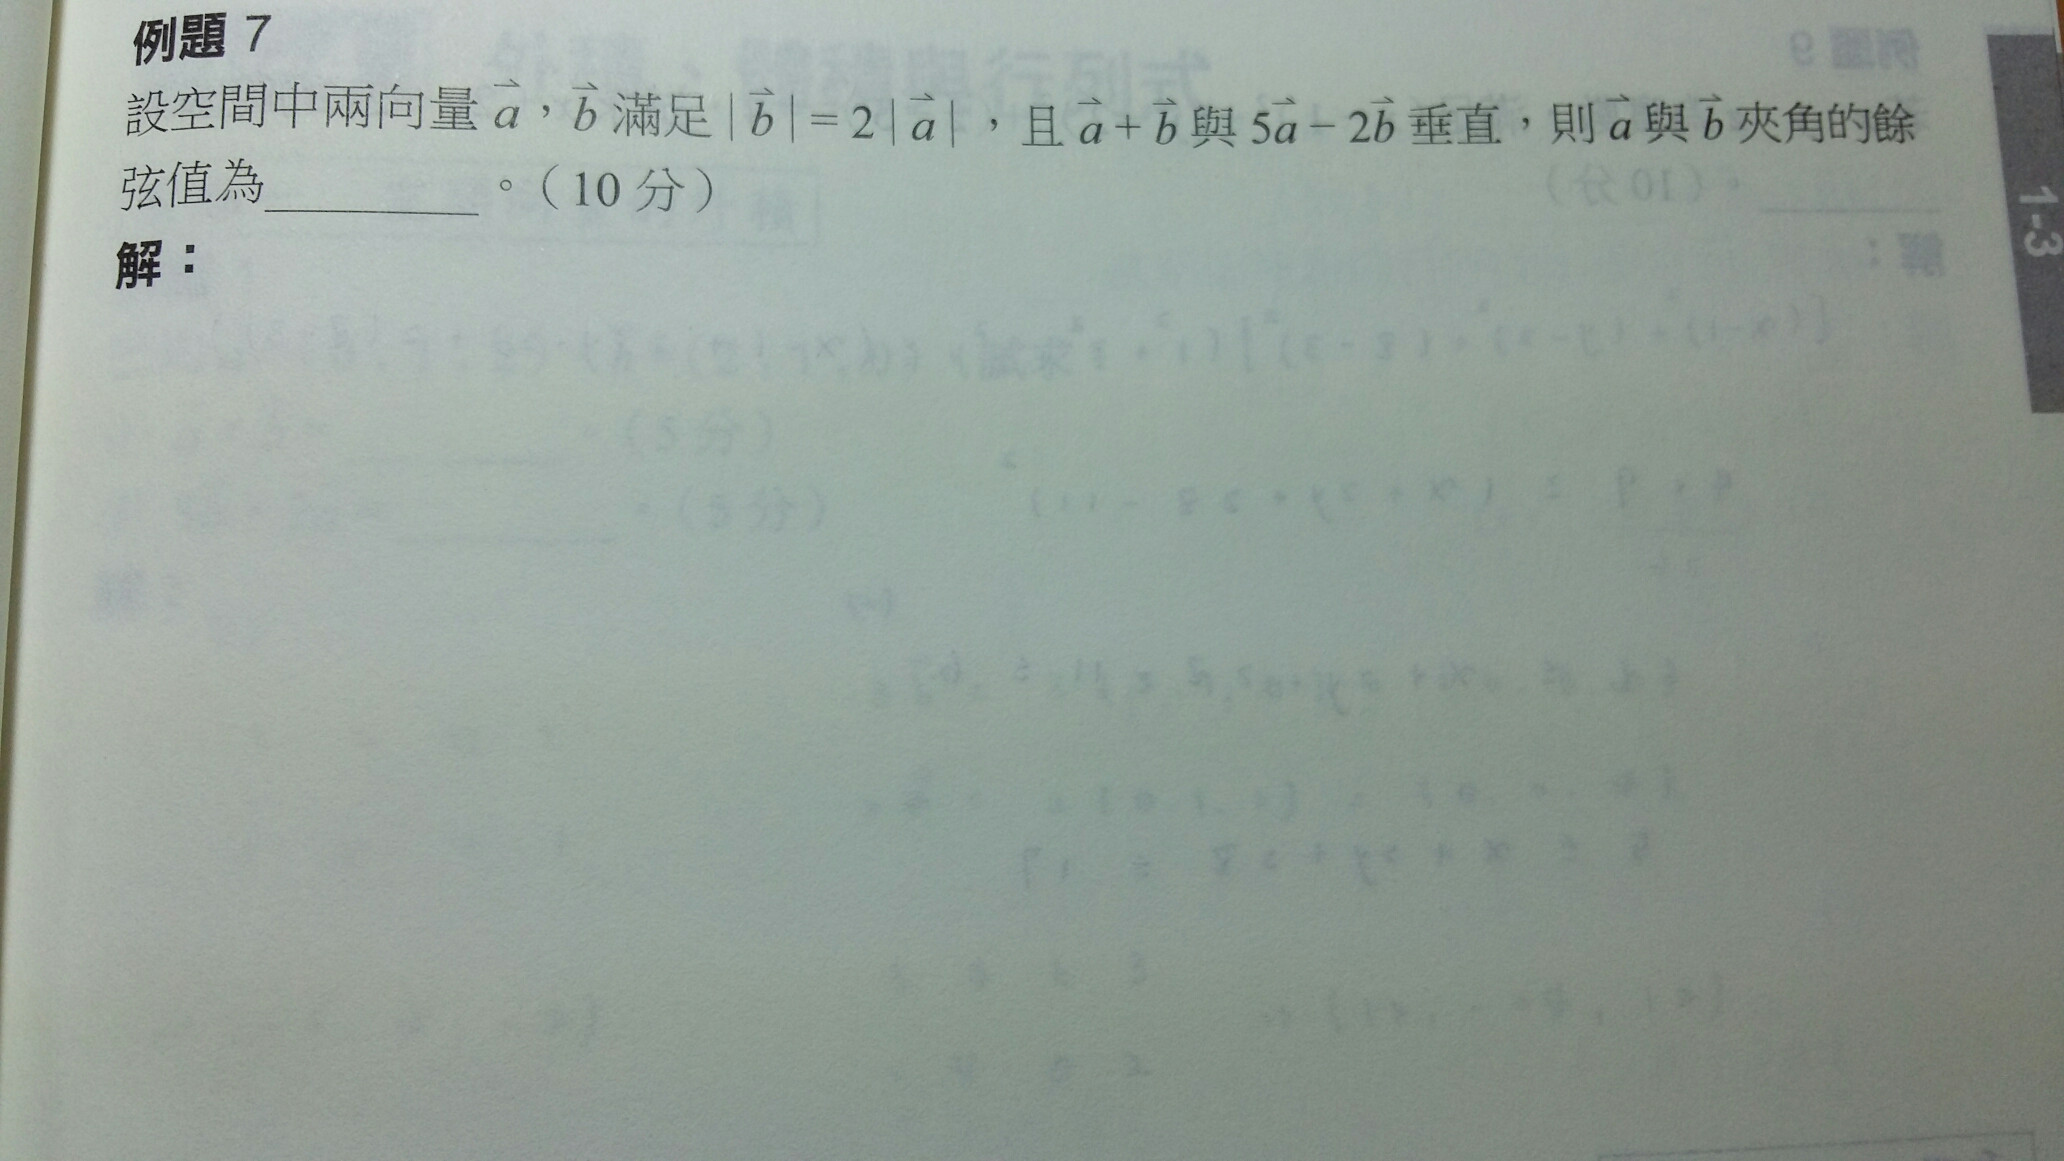 例題 7
設空間中兩向量 $\vec{a}$，$\vec{b}$ 滿足 $|\vec{b}| = 2|\vec{a}|$，且 $\vec{a} + \vec{b}$ 與 $5\vec{a} - 2\vec{b}$ 垂直，則 $\vec{a}$ 與 $\vec{b}$ 夾角的餘
弦值為________。（10 分）
解：
1-3